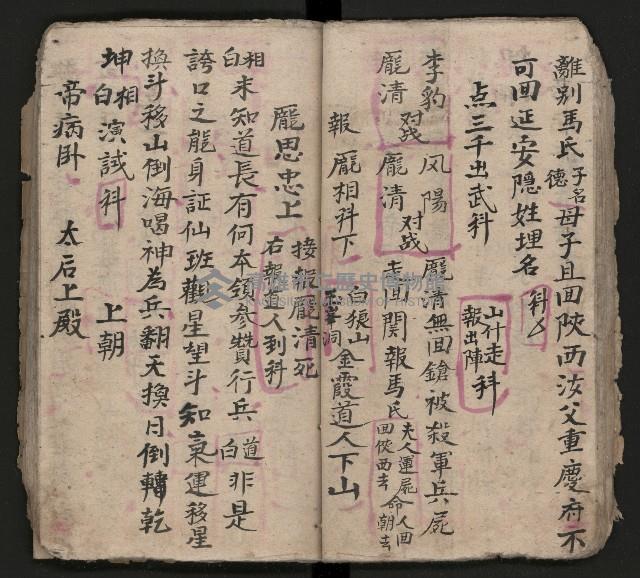 離別馬氏子名德母子且回陝西汝父重慶府不
可回延安隐姓埋名科
点三千出武科
山什走科
報出陣
李豹 风陽 龐清無回鎗被殺軍兵屍
对战 对战
龐清 龐清 走回関報馬氏夫人運屍命人回
回陝西去 朝去
報 龐相科下 白猿山
洞金霞道人下山
龐思忠上 接報龐清死
右報道人到科
相白未知道長有何本領參贊行兵 道白非是
誇口之龍身証仙班觀星望斗知氣運移星
換斗移山倒海喝神為兵翻天換日倒轉乾
坤相白演試科 上朝
帝病卧 太后上殿
高雄市立歷史博物館
KAOHSIUNG MUSEUM OF HISTORY